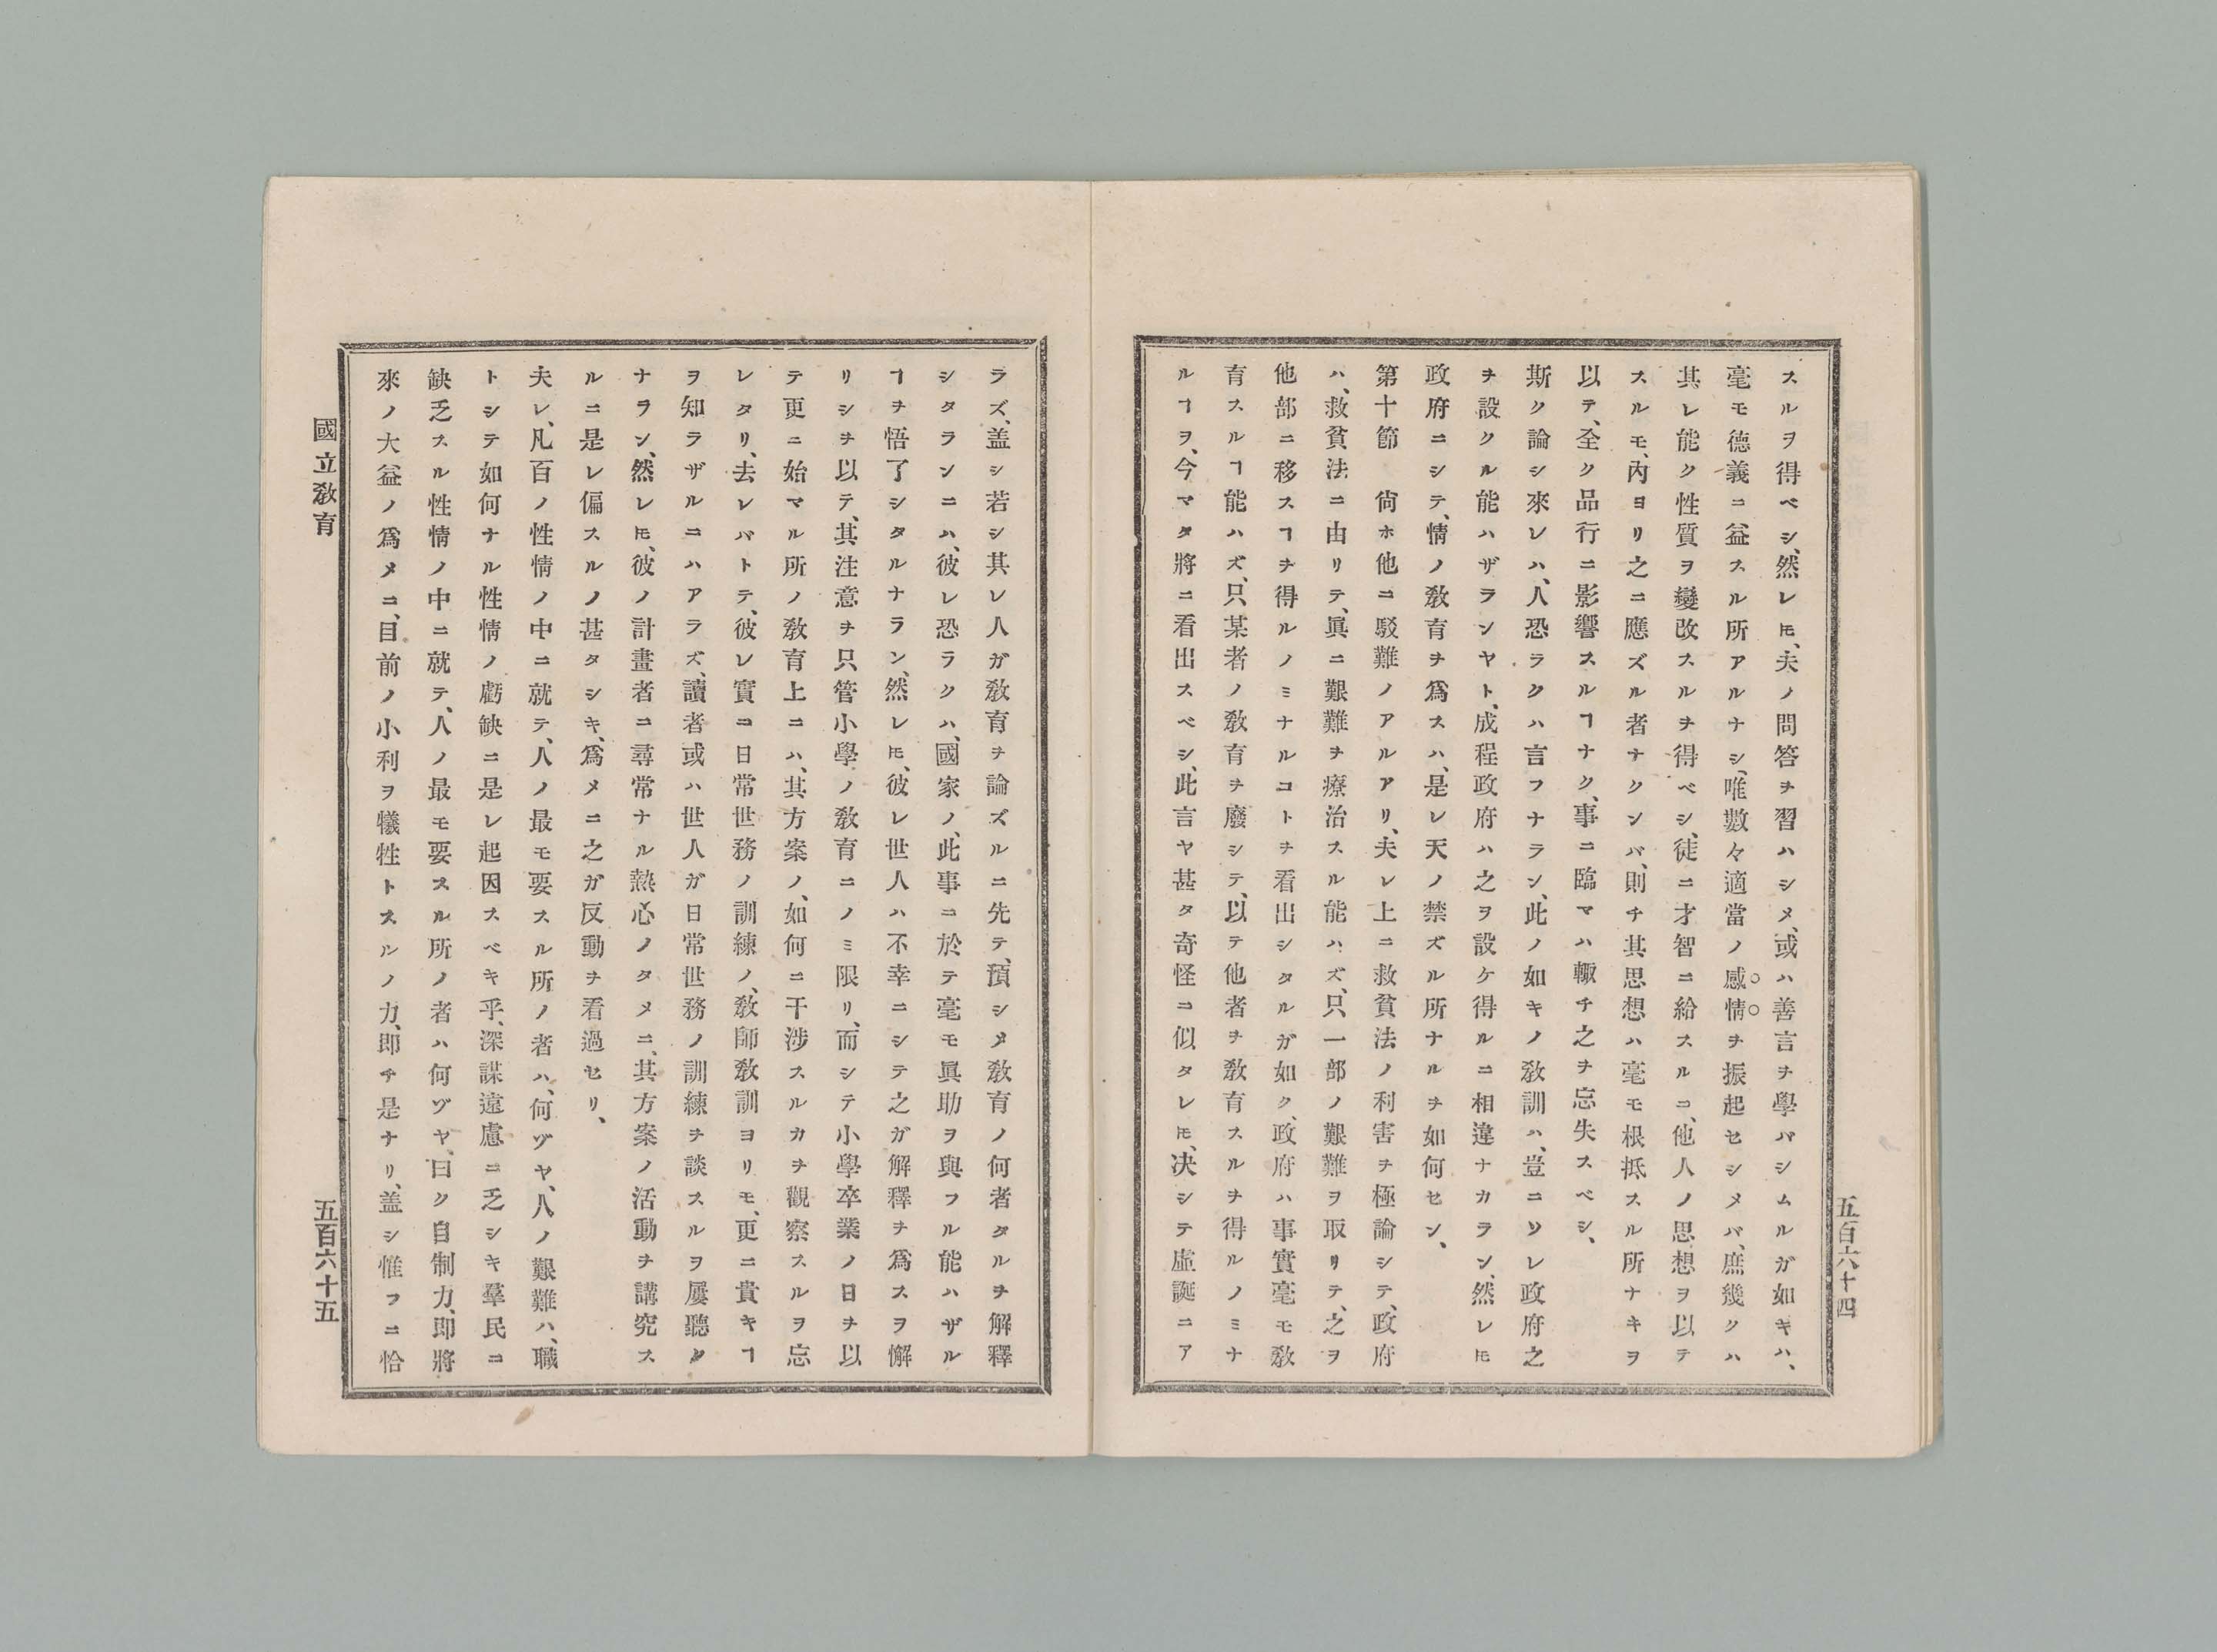 スルヲ得ベシ、然レㇳモ、夫ノ問答ヲ習ハシメ、或ハ善言ヲ學バシムルガ如キハ、
毫モ德義ニ益スル所アルナシ、唯數々適當ノ感情ヲ振起セシメバ、庶幾クハ
其レ能ク性質ヲ變改スルヲ得ベシ、徒ニ才智ニ給スルニ、他人ノ思想ヲ以テ
スルモ、內ヨリ之ニ應ズル者ナクンバ、則チ其思想ハ毫モ根抵スル所ナキヲ
以テ、全ク品行ニ影響スルヿナク、事ニ臨マハ輙チ之ヲ忘失スベシ、
斯ク論シ來レハ、人恐ラクハ言フナラン、此ノ如キノ敎訓ハ、豈ニソレ政府之
ヲ設クル能ハザランヤト、成程政府ハ之ヲ設ケ得ルニ相違ナカラン、然レㇳモ
政府ニシテ、情ノ敎育ヲ爲スハ、是レ天ノ禁ズル所ナルヲ如何セン、
第十節　尙ホ他ニ駁難ノアルアリ、夫レ上ニ救貧法ノ利害ヲ極論シテ、政府
ハ、救貧法ニ由リテ、眞ニ艱難ヲ療治スル能ハズ、只一部ノ艱難ヲ取リテ、之ヲ
他部ニ移スヿヲ得ルノミナルコトヲ看出シタルガ如ク、政府ハ事實毫モ敎
育スルヿ能ハズ、只某者ノ敎育ヲ廢シテ、以テ他者ヲ敎育スルヲ得ルノミナ
ルヿヲ、今マタ將ニ看出スベシ、此言ヤ甚タ奇怪ニ似タレㇳモ、決シテ虛誕ニア
五百六十四
ラズ、盖シ若シ其レ人ガ敎育ヲ論ズルニ先テ、預シメ敎育ノ何者タルヲ解釋
シタランニハ、彼レ恐ラクハ、國家ノ、此事ニ於テ毫モ眞助ヲ與フル能ハザル
ヿヲ悟了シタルナラン、然レㇳモ、彼レ世人ハ不幸ニシテ之ガ解釋ヲ爲スヲ懈
リシヲ以テ、其注意ヲ只管小學ノ敎育ニノミ限リ、而シテ小學卒業ノ日ヲ以
テ更ニ始マル所ノ敎育上ニハ、其方案ノ、如何ニ干涉スルカヲ觀察スルヲ忘
レタリ、去レバトテ、彼レ實ニ日常世務ノ訓練ノ、敎師敎訓ヨリモ、更ニ貴キヿ
ヲ知ラザルニハアラズ、讀者或ハ世人ガ日常世務ノ訓練ヲ談スルヲ屢聽ク
ナラン、然レㇳモ、彼ノ計畫者ニ尋常ナル熱心ノタメニ、其方案ノ活動ヲ講究ス
ルニ是レ偏スルノ甚タシキ、爲メニ之ガ反動ヲ看過セリ、
夫レ、凡百ノ性情ノ中ニ就テ、人ノ最モ要スル所ノ者ハ、何ヅヤ、人ノ艱難ハ、職
トシテ如何ナル性情ノ虧缺ニ是レ起因スベキ乎、深謀遠慮ニ乏シキ羣民ニ
缺乏スル性情ノ中ニ就テ、人ノ最モ要スル所ノ者ハ何ヅヤ、曰ク自制力、即將
來ノ大益ノ爲メニ、目前ノ小利ヲ犧牲トスルノ力、即チ是ナリ、盖シ惟フニ恰
國立敎育
五百六十五